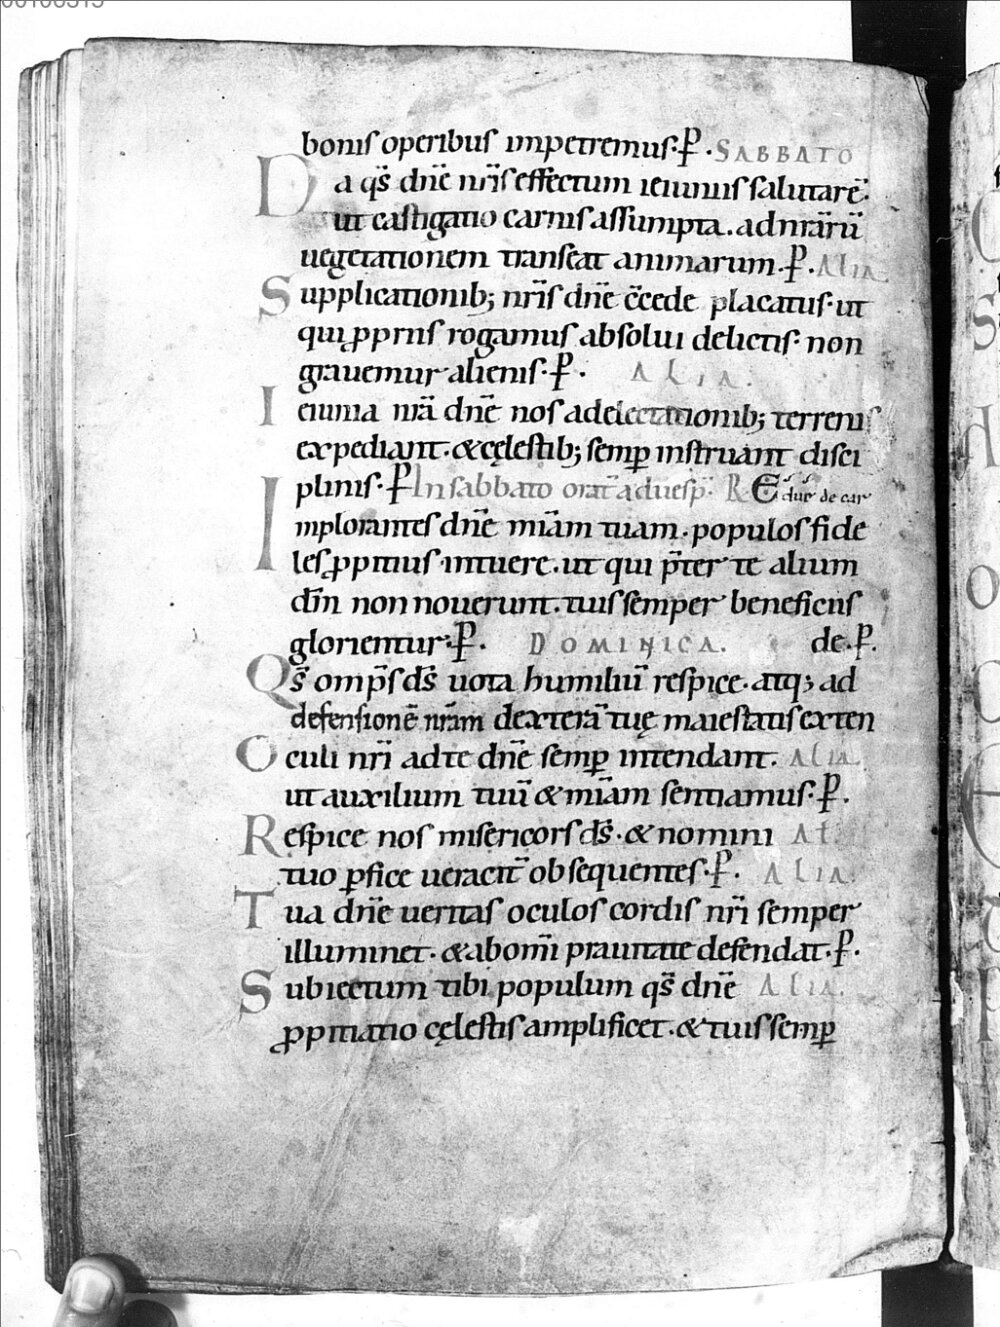 bonis operibus impetremus. P̄. SABBATO
Da qs̄ dn̄e nr̄is effectum ieiuniis salutarē.
ut castigatio carnis assumpta. ad nr̄arū
uegetationem transeat animarum. P̄. ALIA
Supplicationib; nr̄is dn̄e c̄cede placatus. ut
qui ꝓpriis rogamus absolui delictis. non
grauemur alienis. P̄. ALIA.
Ieiunia nr̄a dn̄e nos a delectationib; terrenis
expediant. & cęlestib; semꝑ instruant disci
plinis. P̄ In sabbato orat̄ ad uesp̄. R
Implorantes dn̄e miam tuam. populos fide
les ꝓpitius intuere. ut qui p̄ter te alium
dm̄ non nouerunt. tuis semper beneficiis
glorientur. P̄. DOMINICA. de. P̄.
Qs̄ omp̄s ds̄ uota humiliū respice. atq; ad
defensionē nr̄am dexterā tuę maiestatis exten
Oculi nr̄i ad te dn̄e semꝑ intendant. ALIA.
ut auxilium tuū & miam sentiamus. P̄.
Respice nos misericors ds̄. & nomini AL.
tuo ꝑfice ueracit̄ obsequentes. P̄. ALIA.
Tua dn̄e ueritas oculos cordis nr̄i semper
illuminet. & ab om̄i prauitate defendat. P̄.
Subiectum tibi populum qs̄ dn̄e ALIA.
ꝓpitiatio cęlestis amplificet. & tuis semꝑ